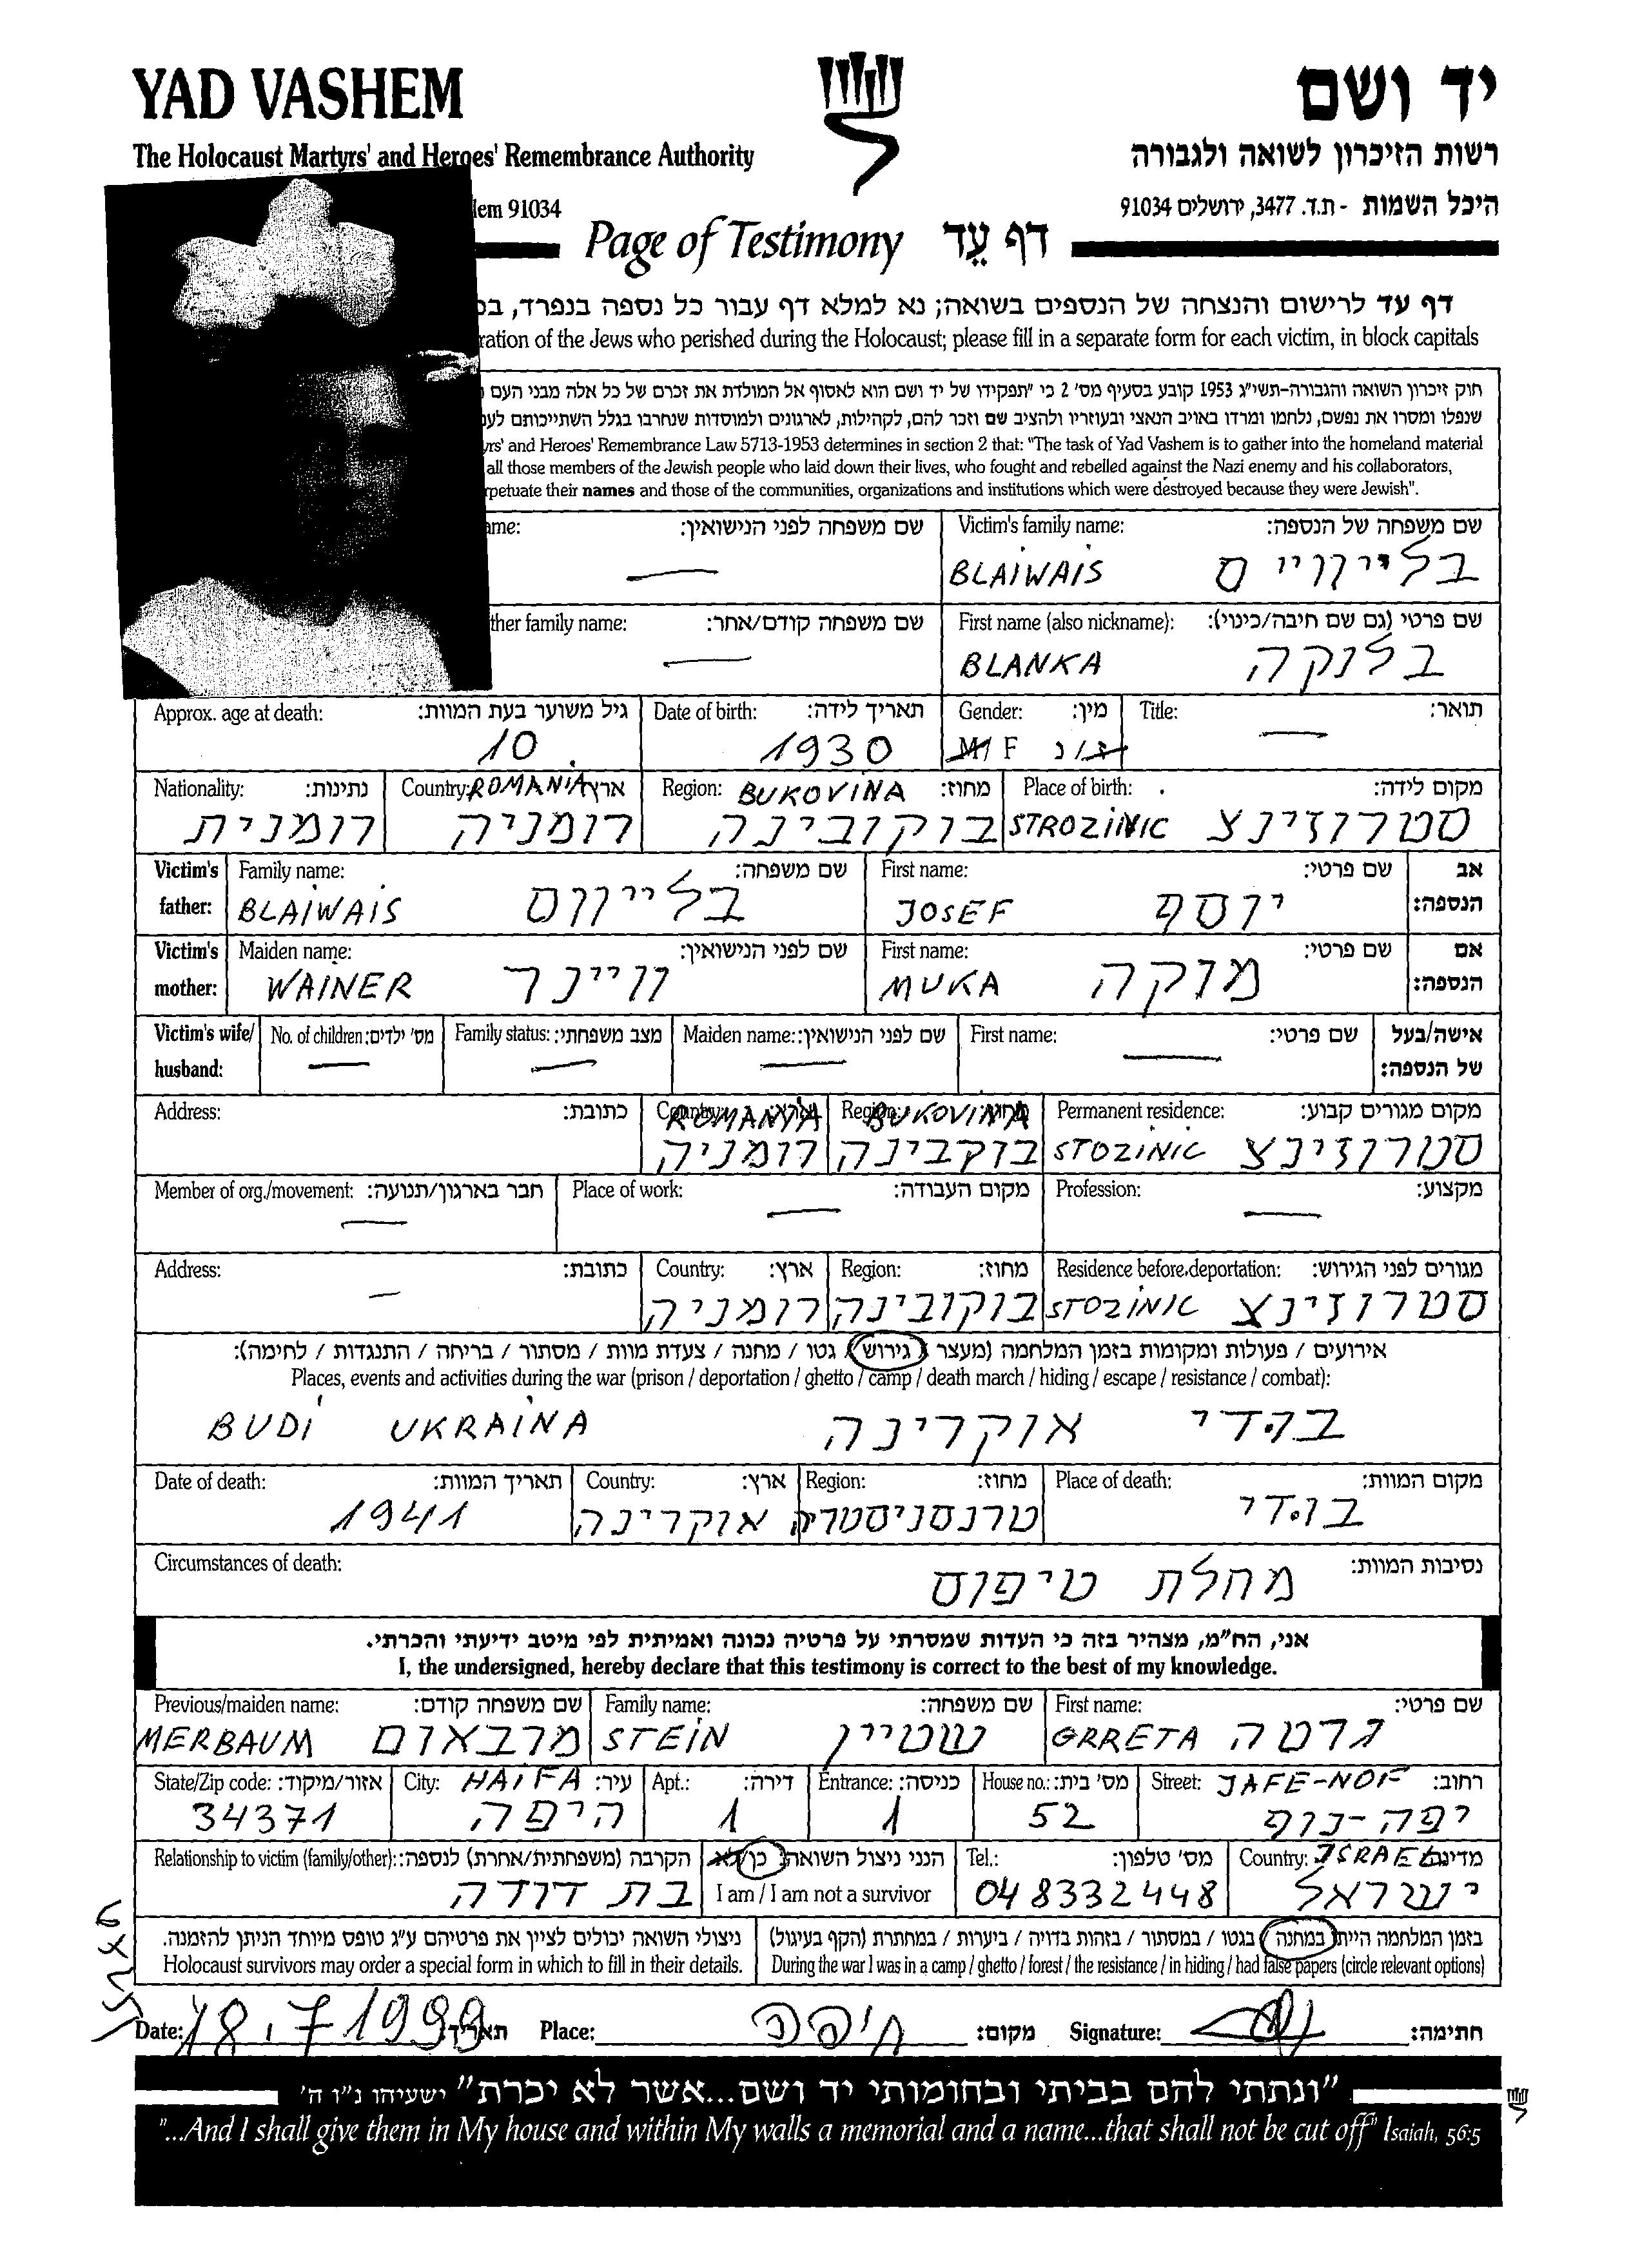 YAD VASHEM
יד ושם
The Holocaust Martyrs' and Heroes' Remembrance Authority
רשות הזיכרון לשואה ולגבורה
lem 91034
היכל השמות - ת.ד. 3477, ירושלים 91034
Page of Testimony דף עֵד
דף עד לרישום והנצחה של הנספים בשואה; נא למלא דף עבור כל נספה בנפרד,
ration of the Jews who perished during the Holocaust; please fill in a separate form for each victim, in block capitals
חוק זיכרון השואה והגבורה-תשי"ג 1953 קובע בסעיף מס' 2 כי "תפקידו של יד ושם הוא לאסוף אל המולדת את זכרם של כל אלה מבני העם
שנפלו ומסרו את נפשם, נלחמו ומרדו באויב הנאצי ובעוזריו ולהציב שם וזכר להם, לקהילות, לארגונים ולמוסדות שנחרבו בגלל השתייכותם לעם
yrs' and Heroes' Remembrance Law 5713-1953 determines in section 2 that: "The task of Yad Vashem is to gather into the homeland material
all those members of the Jewish people who laid down their lives, who fought and rebelled against the Nazi enemy and his collaborators,
rpetuate their names and those of the communities, organizations and institutions which were destroyed because they were Jewish".
ame: שם משפחה לפני הנישואין: Victim's family name: שם משפחה של הנספה:
— BLAIWAIS בלייווייס
ther family name: שם משפחה קודם/אחר: First name (also nickname): שם פרטי (גם שם חיבה/כינוי):
— BLANKA בלנקה
Approx. age at death: גיל משוער בעת המוות: Date of birth: תאריך לידה: Gender: מין: Title: תואר:
10 1930 M/ F ז/נ —
Nationality: נתינות: Country: ROMANIA ארץ: Region: BUKOVINA מחוז: Place of birth: מקום לידה:
רומנית רומניה בוקובינה STROZINIC סטרוזינצ
Victim's father: Family name: שם משפחה: First name: שם פרטי: אב הנספה:
BLAIWAIS בלייווס JOSEF יוסף
Victim's mother: Maiden name: שם לפני הנישואין: First name: שם פרטי: אם הנספה:
WAINER ויינר MUKA מוקה
Victim's wife/ husband: No. of children: מס' ילדים: Family status: מצב משפחתי: Maiden name: שם לפני הנישואין: First name: שם פרטי: אישה/בעל של הנספה:
— — — —
Address: כתובת: Country: ROMANIA ארץ: Region: BUKOVINA מחוז: Permanent residence: מקום מגורים קבוע:
רומניה בוקבינה STOZINIC סטרוזינצ
Member of org./movement: חבר בארגון/תנועה: Place of work: מקום העבודה: Profession: מקצוע:
— — —
Address: כתובת: Country: ארץ: Region: מחוז: Residence before deportation: מגורים לפני הגירוש:
— רומניה בוקובינה STOZINIC סטרוזינצ
אירועים / פעולות ומקומות בזמן המלחמה (מעצר / גירוש / גטו / מחנה / צעדת מוות / מסתור / בריחה / התנגדות / לחימה):
Places, events and activities during the war (prison / deportation / ghetto / camp / death march / hiding / escape / resistance / combat):
BUDI UKRAINA בודי אוקרינה
Date of death: תאריך המוות: Country: ארץ: Region: מחוז: Place of death: מקום המוות:
1941 אוקרינה טרנסניסטריה בודי
Circumstances of death: נסיבות המוות:
מחלת טיפוס
אני, הח"מ, מצהיר בזה כי העדות שמסרתי על פרטיה נכונה ואמיתית לפי מיטב ידיעתי והכרתי.
I, the undersigned, hereby declare that this testimony is correct to the best of my knowledge.
Previous/maiden name: שם משפחה קודם: Family name: שם משפחה: First name: שם פרטי:
MERBAUM מרבאום STEIN שטיין GRRETA גרטה
State/Zip code: אזור/מיקוד: City: HAIFA עיר: Apt.: דירה: Entrance: כניסה: House no.: מס' בית: Street: JAFE-NOF רחוב:
34371 היפה 1 1 52 יפה-נוף
Relationship to victim (family/other): הקרבה (משפחתית/אחרת) לנספה: הנני ניצול השואה כן/לא Tel.: מס' טלפון: Country: ISRAEL מדינה:
בת דודה I am / I am not a survivor 04 8332448 ישראל
ניצולי השואה יכולים לציין את פרטיהם ע"ג טופס מיוחד הניתן להזמנה. בזמן המלחמה הייתי במחנה / בגטו / במסתור / בזהות בדויה / ביערות / במחתרת (הקף בעיגול)
Holocaust survivors may order a special form in which to fill in their details. During the war I was in a camp / ghetto / forest / the resistance / in hiding / had false papers (circle relevant options)
Date: 18.7 1999 תאריך: Place: חיפה מקום: Signature: חתימה:
"ונתתי להם בביתי ובחומותי יד ושם...אשר לא יכרת" ישעיהו נ"ו ה'
"...And I shall give them in My house and within My walls a memorial and a name...that shall not be cut off" Isaiah, 56:5